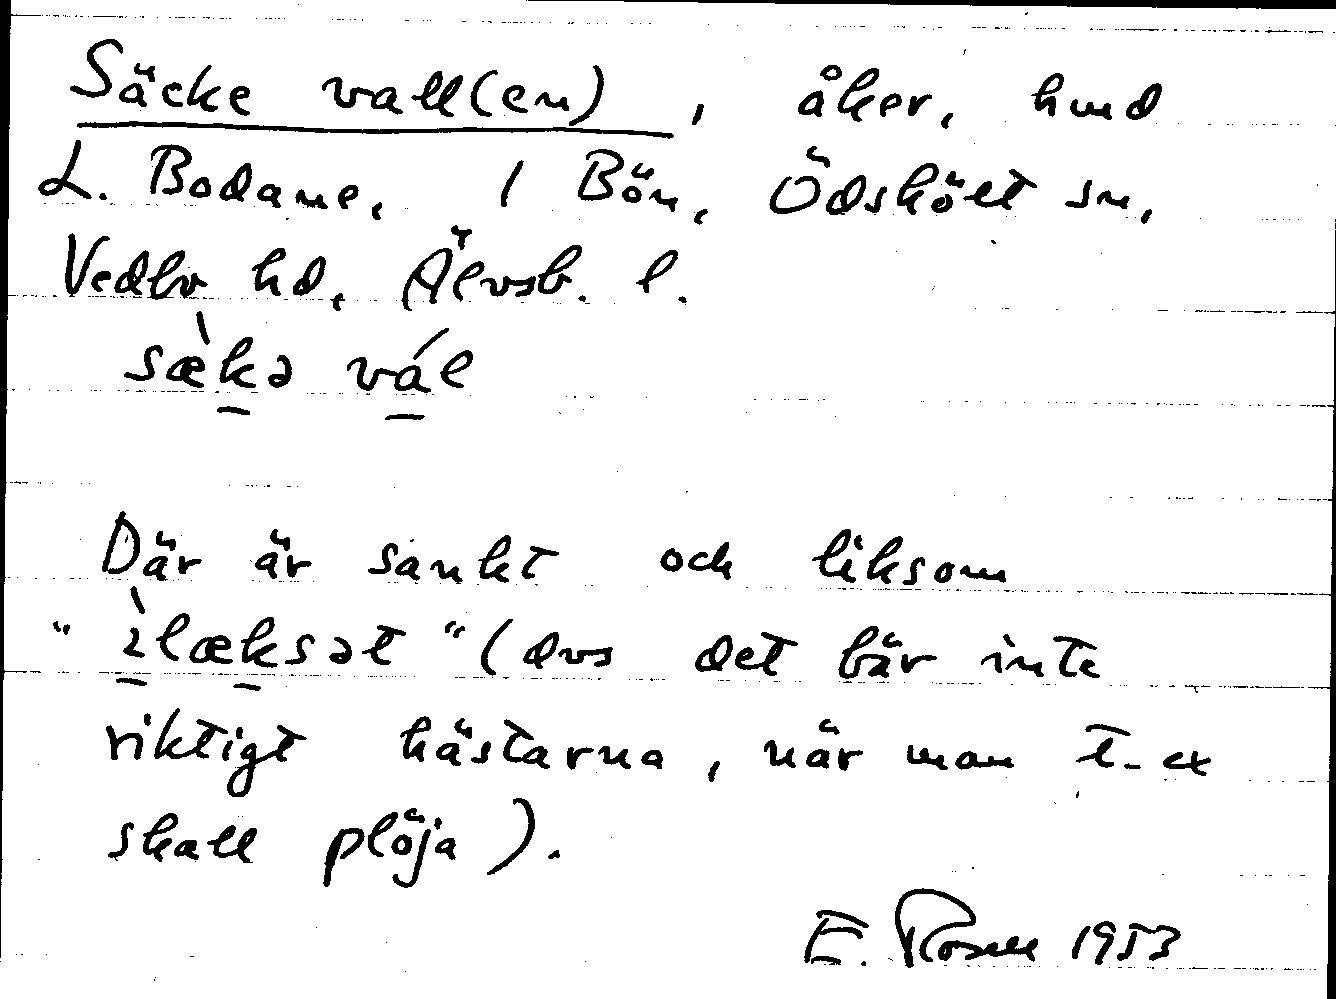 Säcke vall(en), åker, hmd
L. Bodane, 1 Bön, Ödsköлt sn,
Vedbo hd, Älvsb. l.
sæ̀kə vál
Där är sankt och liksom
"ìlæksət" (dvs det bär inte
riktigt hästarna, när man t-ex
skall plöja).
E. Rosell 1953